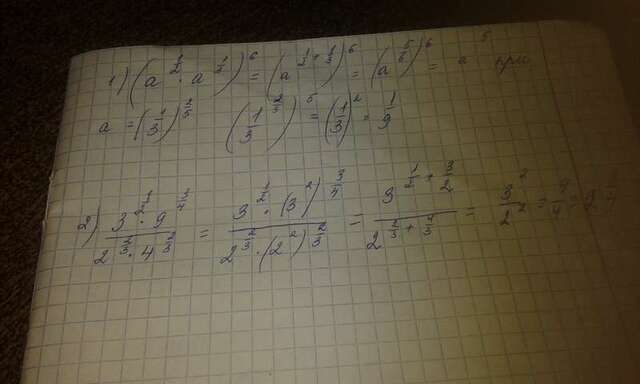 1) (a^{1/2} · a^{1/3})^6 = (a^{1/2 + 1/3})^6 = (a^{5/6})^6 = a^5 при
a = (1/3)^{2/5} ((1/3)^{2/5})^5 = (1/3)^2 = 1/9
2) (3^{1/2} · 9^{3/4}) / (2^{2/3} · 4^{2/3}) = (3^{1/2} · (3^2)^{3/4}) / (2^{2/3} · (2^2)^{2/3}) = 3^{1/2 + 3/2} / 2^{2/3 + 4/3} = 3^2 / 2^2 = 9/4